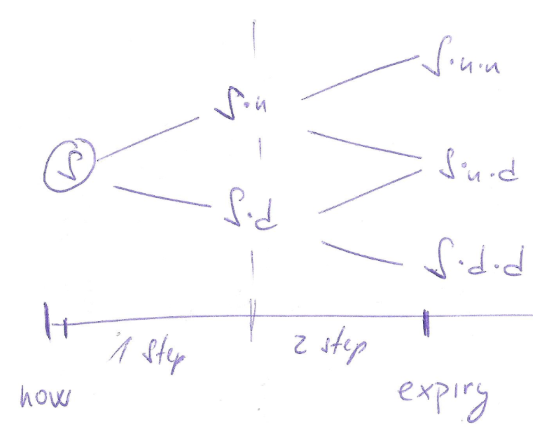 S·u·u
S·u
S
S·u·d
S·d
S·d·d
1 step 2 step
now expiry